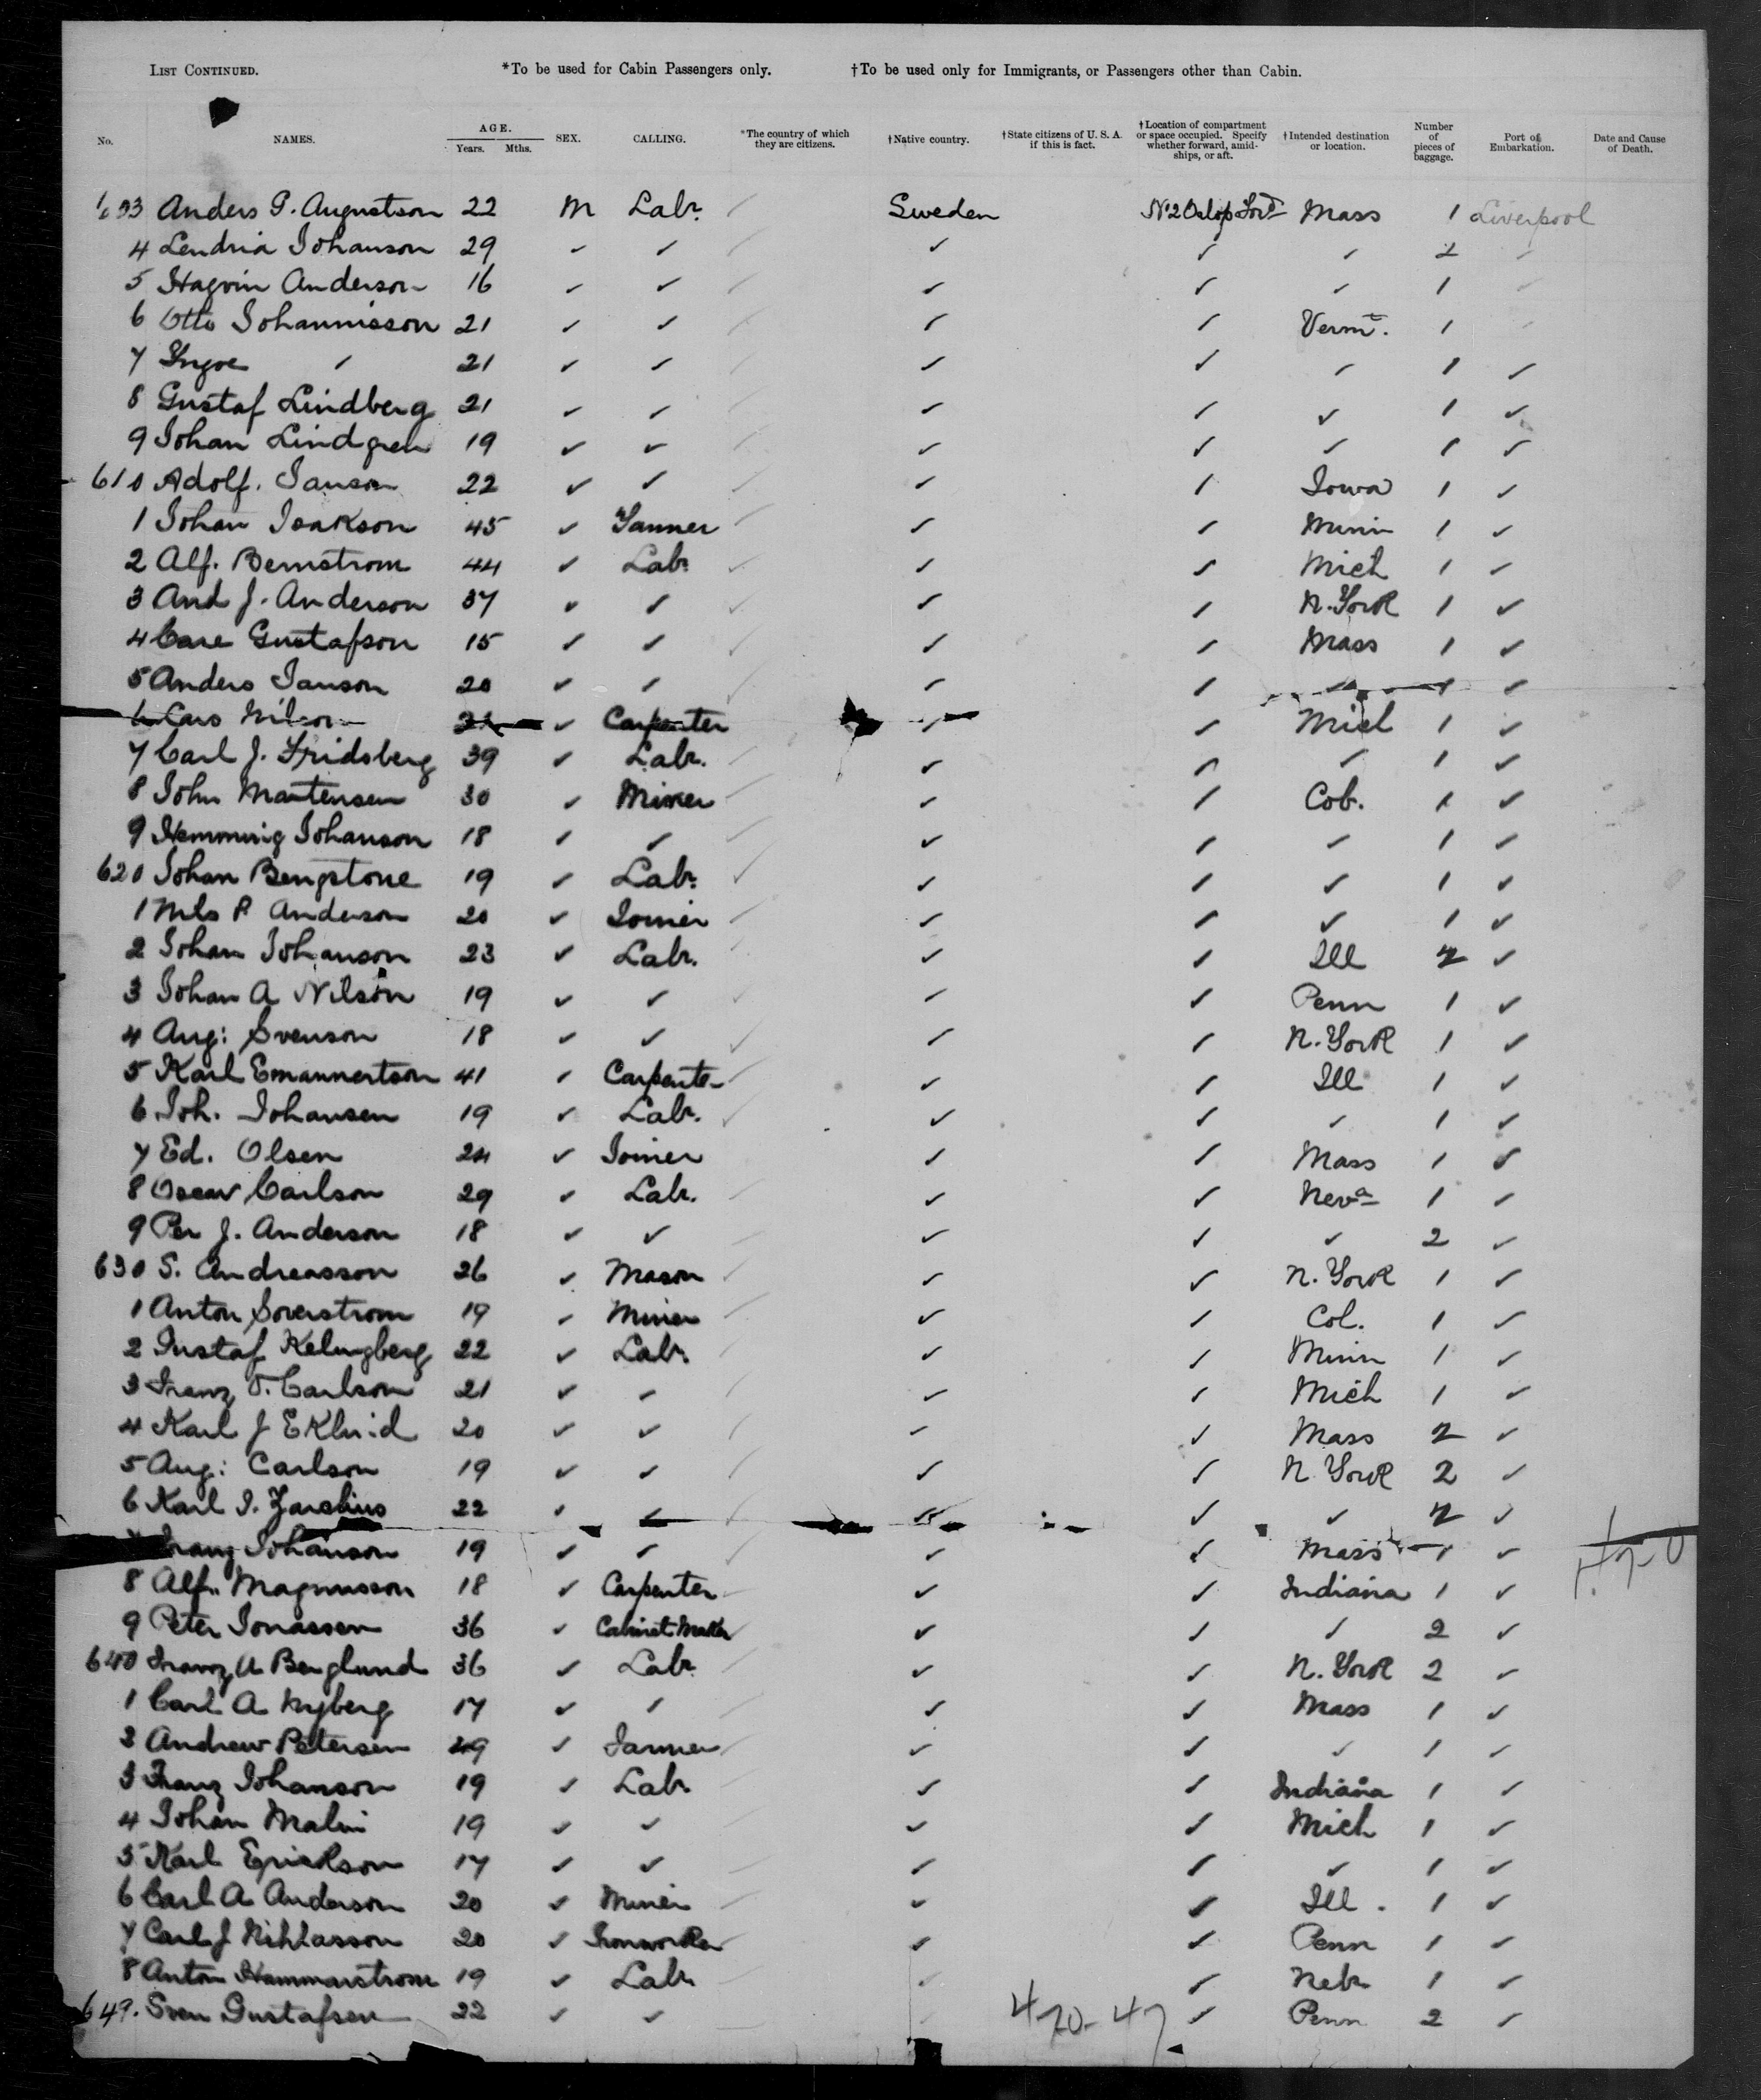 LIST CONTINUED. *To be used for Cabin Passengers only. †To be used only for Immigrants, or Passengers other than Cabin.
No. NAMES. AGE. Years. Mths. SEX. CALLING. *The country of which they are citizens. †Native country. †State citizens of U. S. A. if this is fact. †Location of compartment or space occupied. Specify whether forward, amidships, or aft. †Intended destination or location. Number of pieces of baggage. Port of Embarkation. Date and Cause of Death.
603 Anders P. Augustson 22 M Labr. Sweden No 2 Orlop Ford Mass 1 Liverpool
4 Johanson 29 ✓ ✓ ✓ ✓ ✓ 2 ✓
5 Hagvin Anderson 16 ✓ ✓ ✓ ✓ ✓ 1 ✓
6 Otto Johannisson 21 ✓ ✓ ✓ ✓ Vermt. 1 ✓
7 Yngve ✓ 21 ✓ ✓ ✓ ✓ ✓ 1 ✓
8 Gustaf Lindberg 21 ✓ ✓ ✓ ✓ ✓ 1 ✓
9 Johan Lindgren 19 ✓ ✓ ✓ ✓ ✓ 1 ✓
610 Adolf. Janson 22 ✓ ✓ ✓ ✓ Iowa 1 ✓
1 Johan Isakson 45 ✓ ✓ ✓ Minn 1 ✓
2 Alf. Bernstrom 44 ✓ Labr ✓ ✓ Mich 1 ✓
3 And J. Anderson 37 ✓ ✓ ✓ ✓ N. York 1 ✓
4 Gustafson 15 ✓ ✓ ✓ ✓ Mass 1 ✓
5 Anders Janson 20 ✓ ✓ ✓ ✓ ✓ 1 ✓
6 Nilson ✓ Carpenter ✓ ✓ Mich 1 ✓
7 Carl J. Fridsberg 39 ✓ Labr. ✓ ✓ ✓ 1 ✓
8 John Martensen 30 ✓ Miner ✓ ✓ Col. 1 ✓
9 Hemming Johanson 18 ✓ ✓ ✓ ✓ ✓ 1 ✓
620 Johan Bengtsone 19 ✓ Labr. ✓ ✓ ✓ 1 ✓
1 Nils P Anderson 20 ✓ Joiner ✓ ✓ ✓ 1 ✓
2 Johan Johanson 23 ✓ Labr. ✓ ✓ Ill 2 ✓
3 Johan A Nilson 19 ✓ ✓ ✓ ✓ Penn 1 ✓
4 Aug: Svenson 18 ✓ ✓ ✓ ✓ N. York 1 ✓
5 Karl 41 ✓ Carpenter ✓ ✓ Ill 1 ✓
6 Joh. Johansen 19 ✓ Labr. ✓ ✓ ✓ 1 ✓
7 Ed. Olsen 24 ✓ Joiner ✓ ✓ Mass 1 ✓
8 Oscar Carlson 29 ✓ Labr. ✓ ✓ Neva 1 ✓
9 Per J. Anderson 18 ✓ ✓ ✓ ✓ ✓ 2 ✓
630 S. Andreasson 26 ✓ Mason ✓ ✓ N. York 1 ✓
1 Anton 19 ✓ Miner ✓ ✓ Col. 1 ✓
2 Gustaf 22 ✓ Labr. ✓ ✓ Minn 1 ✓
3 Franz Carlson 21 ✓ ✓ ✓ ✓ Mich 1 ✓
4 Karl J Eklund 20 ✓ ✓ ✓ ✓ Mass 2 ✓
5 Aug: Carlson 19 ✓ ✓ ✓ ✓ N York 2 ✓
6 Karl 22 ✓ ✓ ✓ ✓ ✓ 2 ✓
7 Franz Johanson 19 ✓ ✓ ✓ ✓ Mass 1 ✓
8 Alf. Magnusson 18 ✓ Carpenter ✓ ✓ Indiana 1 ✓
9 Peter Jonassen 36 ✓ Cabinet Maker ✓ ✓ ✓ 2 ✓
640 Franz A Berglund 36 ✓ Labr ✓ ✓ N. York 2 ✓
1 Carl A Nyberg 17 ✓ ✓ ✓ ✓ Mass 1 ✓
2 Andrew Petersen ✓ Farmer ✓ ✓ ✓ 1 ✓
3 Franz Johanson 19 ✓ Labr ✓ ✓ Indiana 1 ✓
4 Johan Malin 19 ✓ ✓ ✓ ✓ Mich 1 ✓
5 Karl Erickson 17 ✓ ✓ ✓ ✓ ✓ 1 ✓
6 Carl A Anderson 20 ✓ Miner ✓ ✓ Ill. 1 ✓
7 Carl J Nihlasson 20 ✓ Ironworker ✓ ✓ Penn 1 ✓
8 Anton Hammarstrom 19 ✓ Labr ✓ ✓ Nebr 1 ✓
649. Sven Gustafsen 22 ✓ ✓ ✓ ✓ Penn 2 ✓
470-47